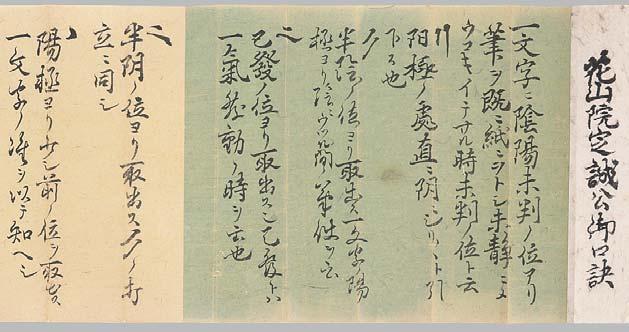 花山院定誠公御口訣
一文字ニ陰陽未判ノ位アリ
筆ヲ既ニ紙ニシトシ未静ニ〆
ウコキイテサル時未判ノ位ト云
陽極ノ處直ニ陰ニシリ
ト引
下ス也
半陰ノ位ヨリ取出ス一文字陽
極ヨリ陰ニウツル間ノ筆
ヲ云
已發ノ位ヨリ取出ス已發トハ
一氣發動ノ時ヲ云也
半陰ノ位ヨリ取出ス
ノ打
立ニ同シ
陽極ヨリ少シ前ノ位ヨリ取出ス
一文字ノ准シ以テ知ヘシ